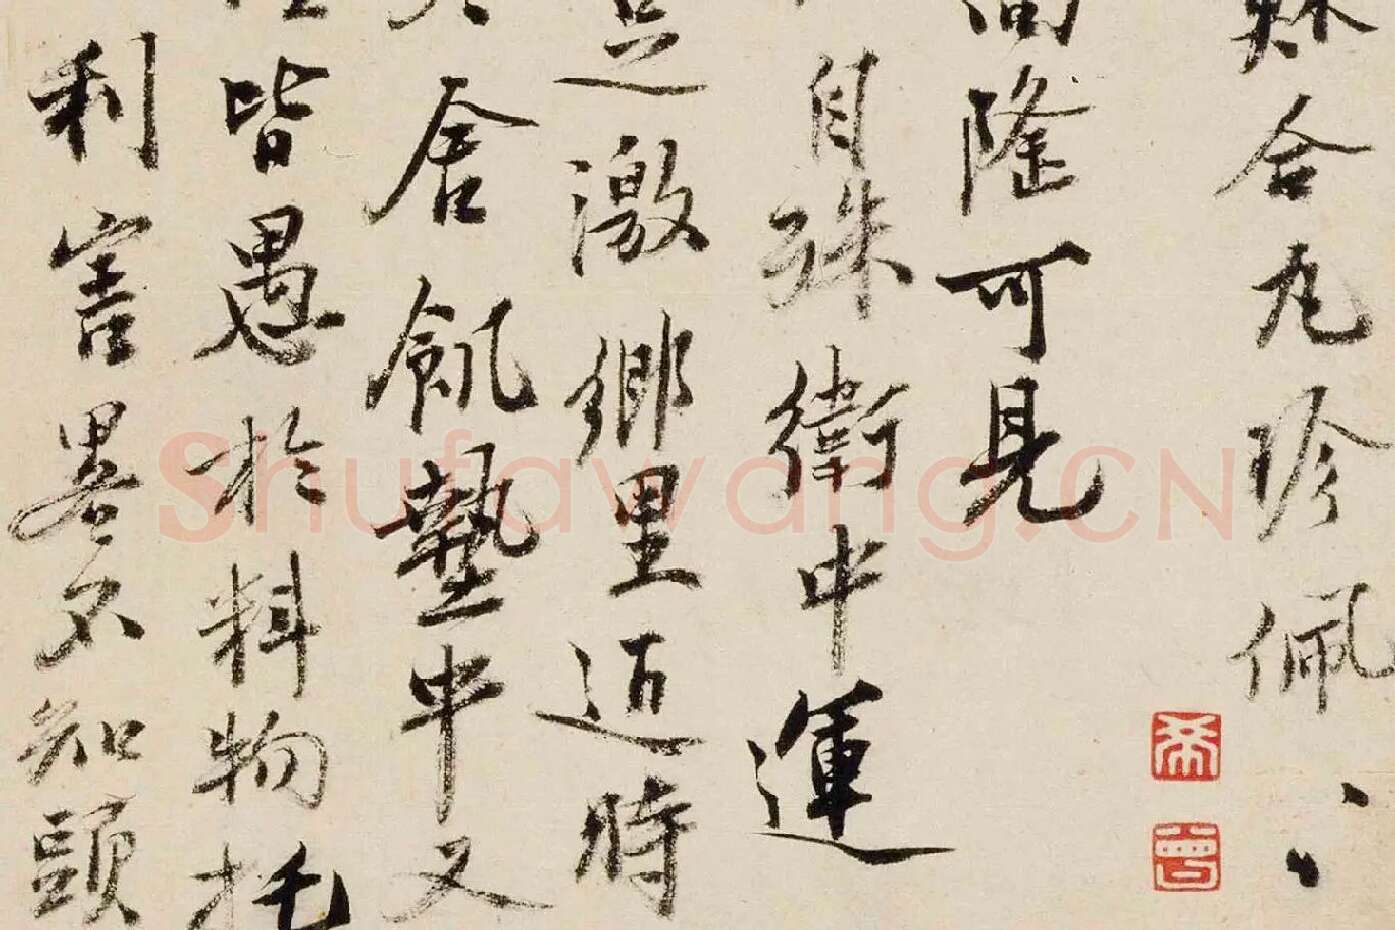 合丸珍佩
隆可見
自殊衛中運
足激鄉里迺時
舍飢墊中又
皆愚於料物托
利害畧不知頭
Shufawang.CN